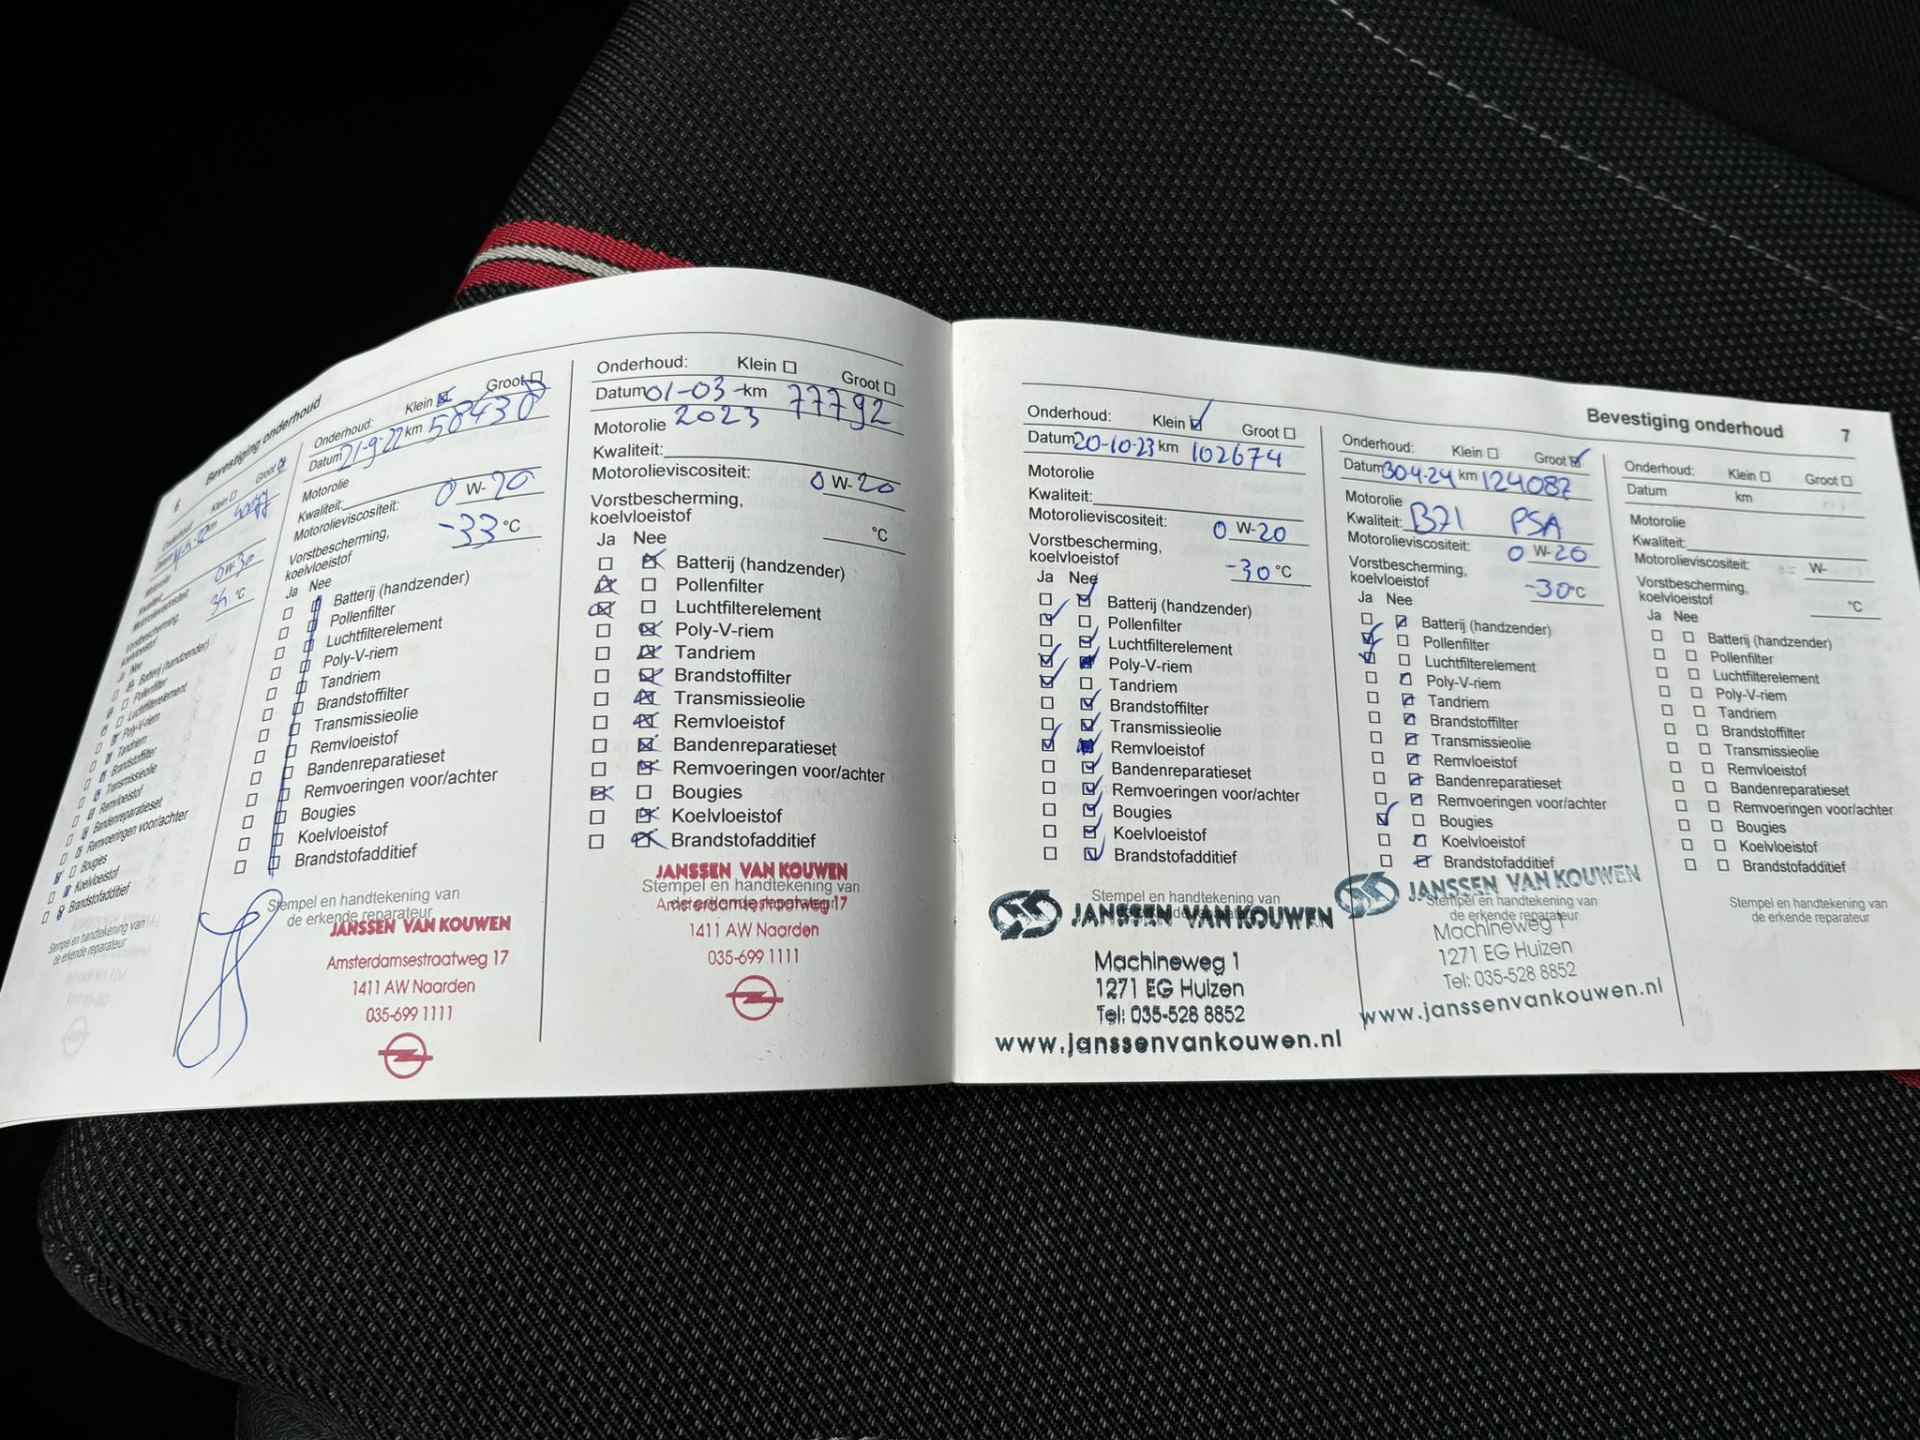 6 Bevestiging onderhoud
Onderhoud: Klein Groot
km
Vorstbescherming,
koelvloeistof
Ja Nee
Batterij (handzender)
Pollenfilter
Luchtfilterelement
Poly-V-riem
Tandriem
Brandstoffilter
Transmissieolie
Remvloeistof
Bandenreparatieset
Remvoeringen voor/achter
Bougies
Koelvloeistof
Brandstofadditief
Stempel en handtekening van
de erkende reparateur
Onderhoud: Klein Groot
Datum 21-9-22 km 58430
Motorolie
Kwaliteit:
Motorolieviscositeit: 0 W-20
Vorstbescherming,
koelvloeistof -33 °C
Ja Nee
Batterij (handzender)
Pollenfilter
Luchtfilterelement
Poly-V-riem
Tandriem
Brandstoffilter
Transmissieolie
Remvloeistof
Bandenreparatieset
Remvoeringen voor/achter
Bougies
Koelvloeistof
Brandstofadditief
Stempel en handtekening van
de erkende reparateur
JANSSEN VAN KOUWEN
Amsterdamsestraatweg 17
1411 AW Naarden
035-699 1111
Onderhoud: Klein Groot
Datum 01-03- km 77792
2023
Motorolie
Kwaliteit:
Motorolieviscositeit: 0 W-20
Vorstbescherming,
koelvloeistof °C
Ja Nee
Batterij (handzender)
Pollenfilter
Luchtfilterelement
Poly-V-riem
Tandriem
Brandstoffilter
Transmissieolie
Remvloeistof
Bandenreparatieset
Remvoeringen voor/achter
Bougies
Koelvloeistof
Brandstofadditief
JANSSEN VAN KOUWEN
Stempel en handtekening van
de erkende reparateur
Amsterdamsestraatweg 17
1411 AW Naarden
035-699 1111
Bevestiging onderhoud 7
Onderhoud: Klein Groot
Datum 20-10-23 km 102674
Motorolie
Kwaliteit:
Motorolieviscositeit: 0 W-20
Vorstbescherming,
koelvloeistof -30 °C
Ja Nee
Batterij (handzender)
Pollenfilter
Luchtfilterelement
Poly-V-riem
Tandriem
Brandstoffilter
Transmissieolie
Remvloeistof
Bandenreparatieset
Remvoeringen voor/achter
Bougies
Koelvloeistof
Brandstofadditief
Stempel en handtekening van
de erkende reparateur
JANSSEN VAN KOUWEN
Machineweg 1
1271 EG Huizen
Tel: 035-528 8852
www.janssenvankouwen.nl
Onderhoud: Klein Groot
Datum 30-4-24 km 124087
Motorolie
Kwaliteit: B71 PSA
Motorolieviscositeit: 0 W-20
Vorstbescherming,
koelvloeistof -30 °C
Ja Nee
Batterij (handzender)
Pollenfilter
Luchtfilterelement
Poly-V-riem
Tandriem
Brandstoffilter
Transmissieolie
Remvloeistof
Bandenreparatieset
Remvoeringen voor/achter
Bougies
Koelvloeistof
Brandstofadditief
JANSSEN VAN KOUWEN
Stempel en handtekening van
de erkende reparateur
Machineweg 1
1271 EG Huizen
Tel: 035-528 8852
www.janssenvankouwen.nl
Onderhoud: Klein Groot
Datum km
Motorolie
Kwaliteit:
Motorolieviscositeit: W-
Vorstbescherming,
koelvloeistof °C
Ja Nee
Batterij (handzender)
Pollenfilter
Luchtfilterelement
Poly-V-riem
Tandriem
Brandstoffilter
Transmissieolie
Remvloeistof
Bandenreparatieset
Remvoeringen voor/achter
Bougies
Koelvloeistof
Brandstofadditief
Stempel en handtekening van
de erkende reparateur